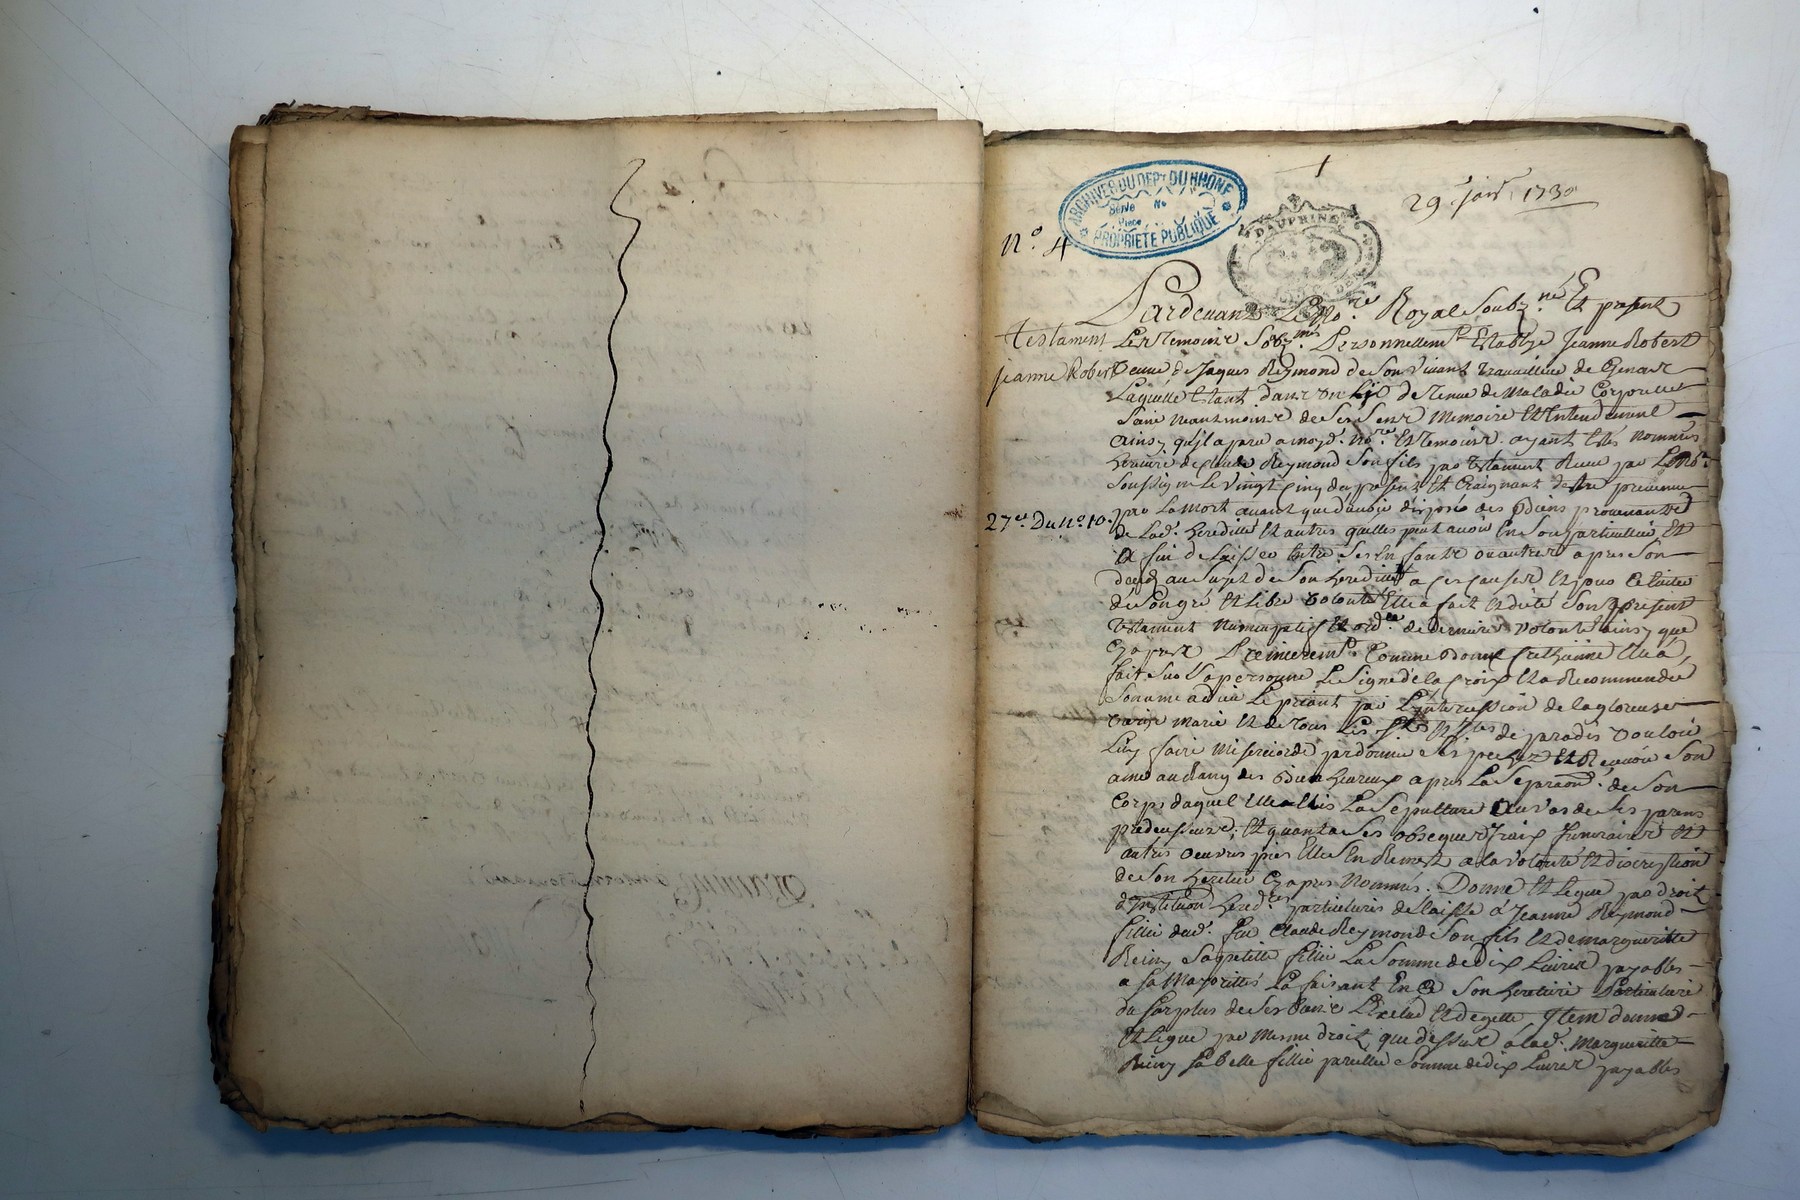 29 janv 1730
ARCHIVES DU DEPT DU RHONE
Série No
Pièce
PROPRIETE PUBLIQUE
DAUPHINE
No. 4
Pardevant Le no.re Royal Soubz.né Et present
Testament
Jeanne Robert
Les temoins Sobz.més Personnellemt Establye Jeanne Robert
veuve de Jaques Reymond de Son vivant travailleur de Genas
Laquelle Estant dans un Lit detenue de Maladie Corporelle
Saine neantmoins de Ses Sens Memoire Et Entendement
ainsy qu'il a paru a moyd. no.re Et temoins ayant Estés nommés
heritiere de Claude Reymond Son fils par testament Receu par Le no.re
Soussigné Le vingt Cinq du present Et Craignant destre prevenue
27e. Du No 10.
par La mort avant que d'avoir disposé des Biens provenants
de Lad. heredité Et autres quelles peut avoir En Son particulier Et
a fin de Laisser Entre Ses Enfants ou autres apres Son
deced au Sujet de Son heredité a Ces Causes Et pour
de Son gré Et Libre volonté Elle a fait Et dicté Son present
testament nuncupatif Et ord.re de derniere volonté ainsy que
Cy apres Premierem.t Comme Bonne Crethienne Elle a
fait Sur Sa personne Le Signe de la Croix Et a Recommendée
Son ame a dieu Le priant par L'intercession de la glorieuse
vierge Marie Et de tous Les Sts Et Stes de paradis vouloir
Luy faire misericorde pardonner Ses pechez Et Recevoir Son
ame au Rang des Bienheureux apres La Separaon. de Son
Corps duquel Elle a Elis La Sepulture au vas de Ses parens
predecesseurs, Et quant a Ses obseques fraix funeraires Et
autres oeuvres pies Elle S'En Remet a la volonté Et discreption
de Son heritier Cy apres nommés. Donne Et Legue par droit
d'Institution hered.re particuliere delaisse a Jeanne Reymond
fillie dud. feu Claude Reymond Son fils Et de margueritte
Reiny Sa petitte fillie La Somme de dix Livres payables
a Sa Majorittés La faisant En Ce Son heritiere Particuliere
du Surplus de Ses Biens L'exclud Et degette, Item donne
Et Legue par Mesme droit que dessus a lad. Margueritte
Reiny Sa belle fillie pareillie Somme de dix Livres payables